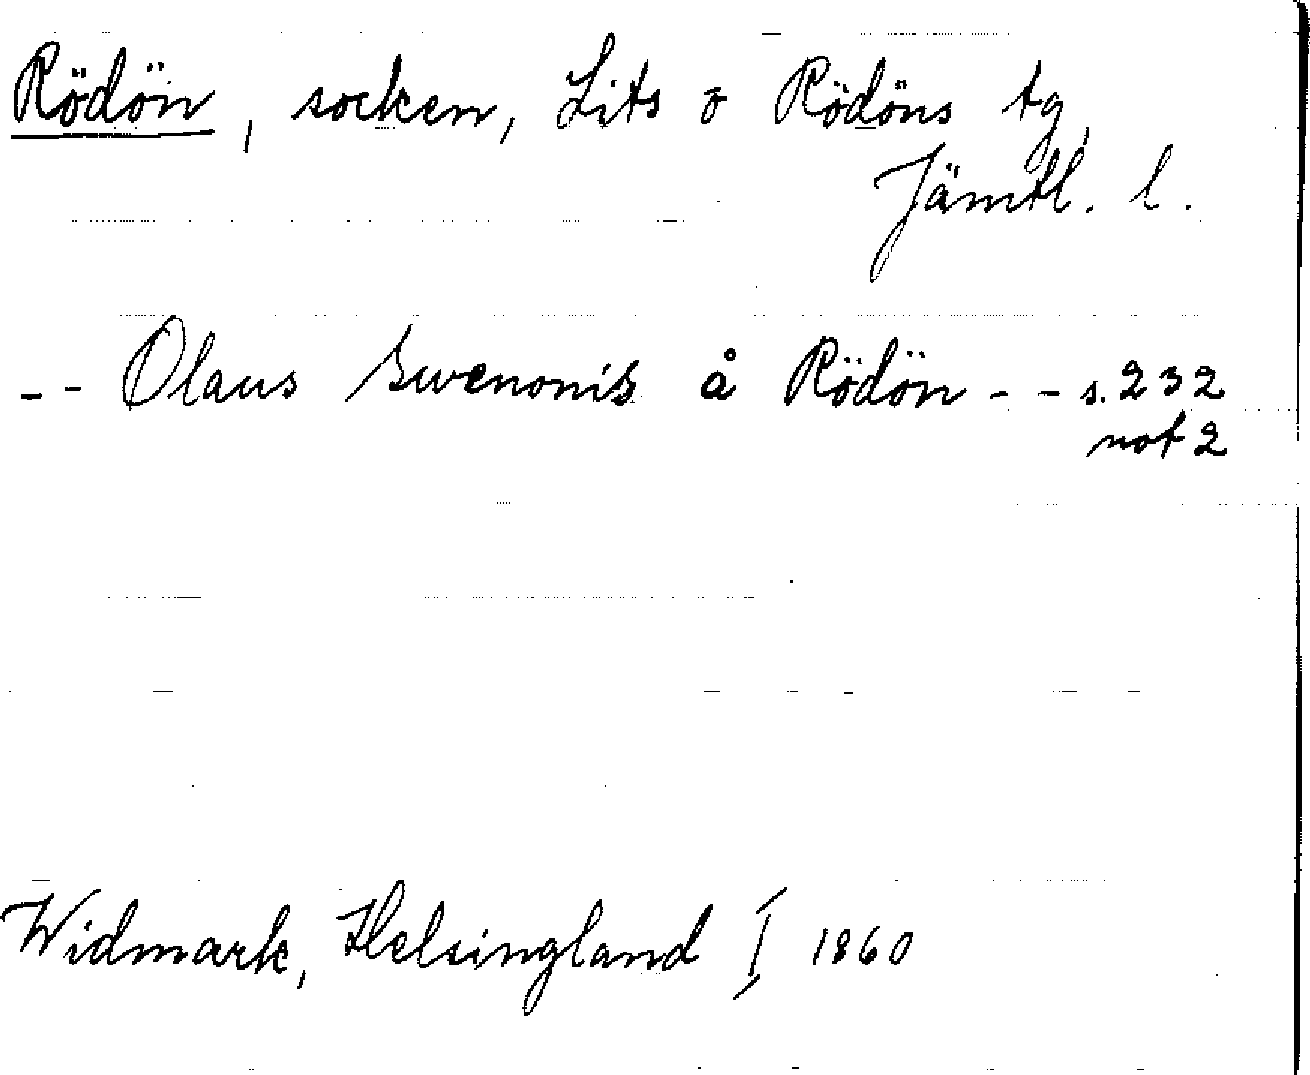 Rödön, socken, Lits o Rödöns tg,
Jämtl. l.
-- Olaus Swenonis å Rödön -- s. 232
not 2
Widmark, Helsingland I 1860